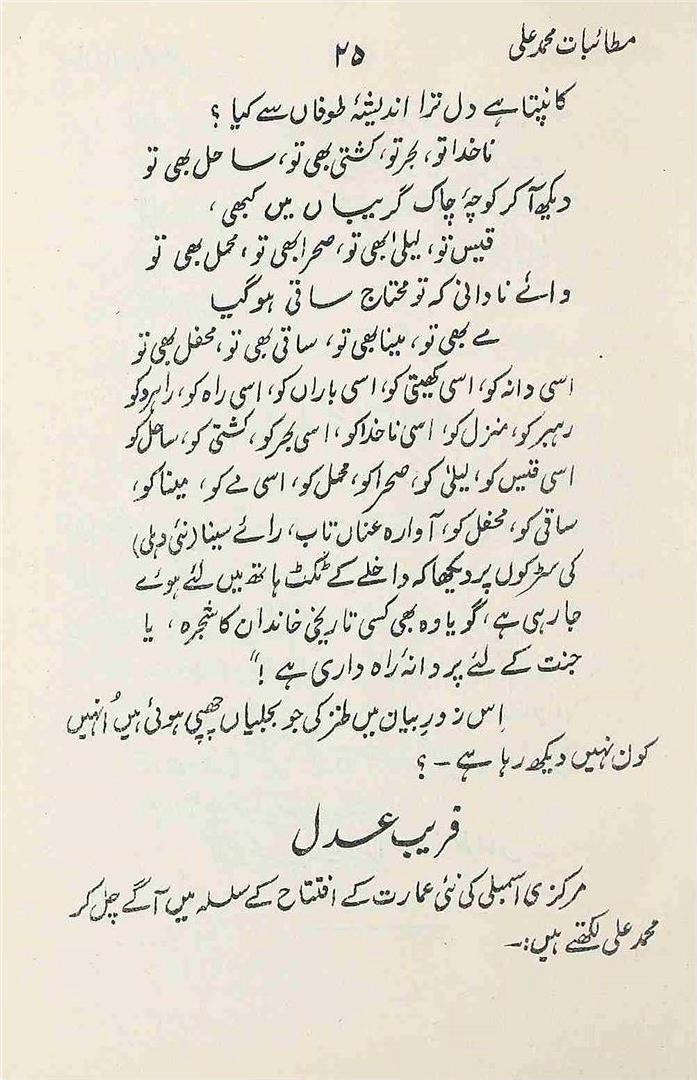 مطائبات محمد علی
۲۵
کانپتا ہے دل ترا اندیشۂ طوفاں سے کیا ؟
ناخدا تو، بحر تو، کشتی بھی تو، ساحل بھی تو
دیکھ آ کر کوچۂ چاک گریباں میں کبھی ،
قیس تو، لیلیٰ بھی تو، صحرا بھی تو، محمل بھی تو
وائے نادانی کہ تو محتاج ساقی ہو گیا
مے بھی تو، مینا بھی تو، ساقی بھی تو، محفل بھی تو
اسی دانہ کو، اسی کھیتی کو، اسی باراں کو، اسی راہ کو، راہرو کو
رہبر کو، منزل کو، اسی ناخدا کو، اسی بحر کو، کشتی کو، ساحل کو
اسی قیس کو، لیلیٰ کو، صحرا کو، محمل کو، اسی مے کو، مینا کو،
ساقی کو، محفل کو، آوارہ عناں تاب، رائے سینا (نئی دہلی)
کی سڑکوں پر دیکھا کہ داخلے کے ٹکٹ ہاتھ میں لئے ہوئے
جا رہی ہے، گویا وہ بھی کسی تاریخی خاندان کا شجرہ ، یا
جنت کے لئے پروانۂ راہ داری ہے !"
اِس زورِ بیان میں طنز کی جو بجلیاں چھپی ہوئی ہیں اُنہیں
کون نہیں دیکھ رہا ہے ۔ ؟
فریب عدل
مرکزی اسمبلی کی نئی عمارت کے افتتاح کے سلسلہ میں آگے چل کر
محمد علی لکھتے ہیں:۔